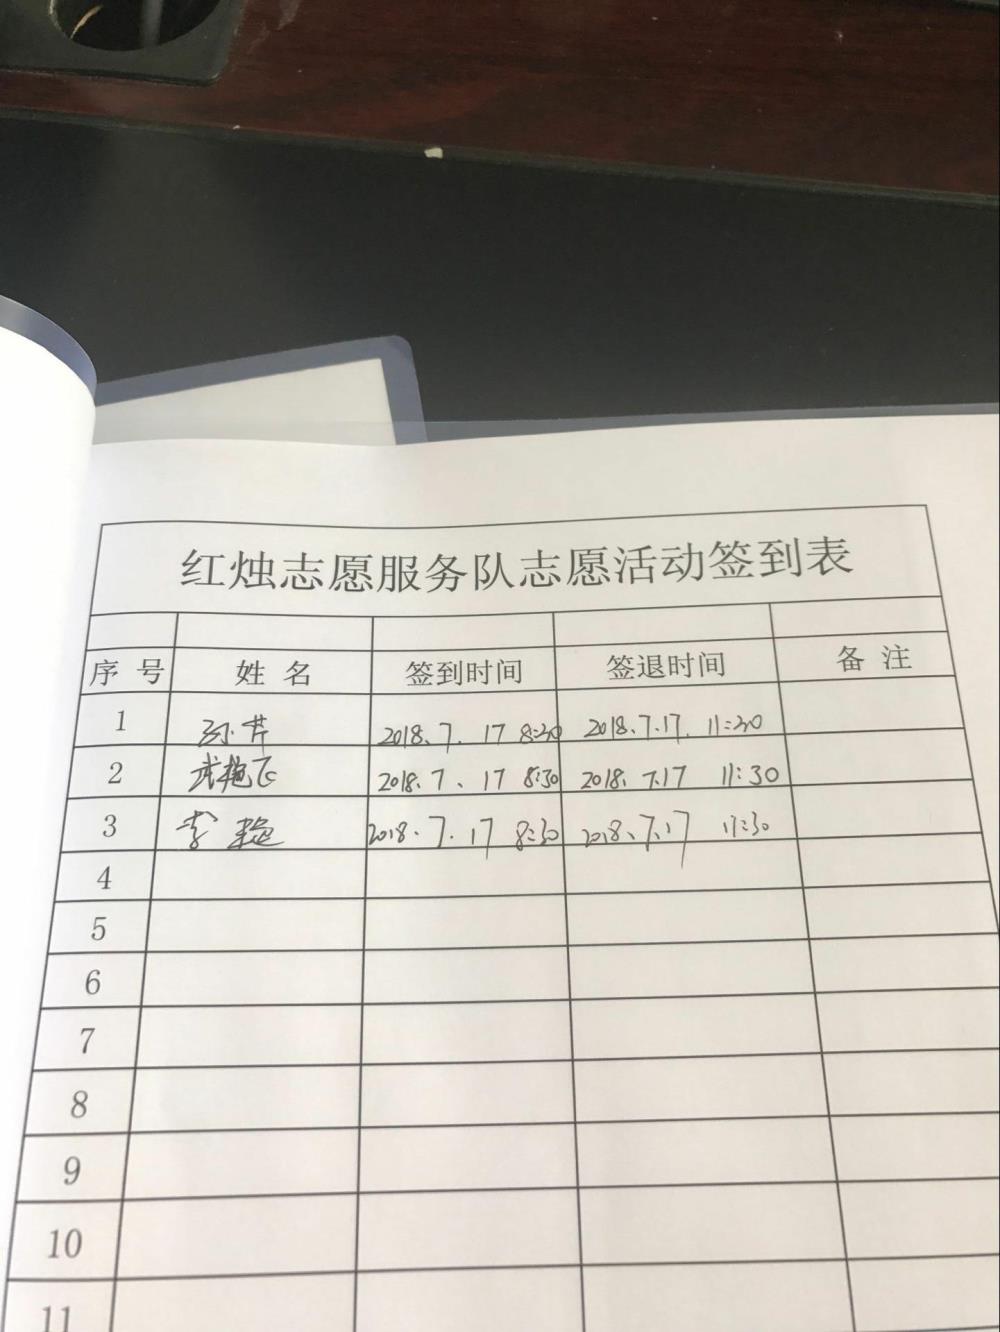 红烛志愿服务队志愿活动签到表
序号 姓名 签到时间 签退时间 备注
1 孙芹 2018.7.17 8:30 2018.7.17. 11:30
2 武艳飞 2018.7.17 8:30 2018.7.17 11:30
3 李艳 2018.7.17 8:30 2018.7.17 11:30
4
5
6
7
8
9
10
11